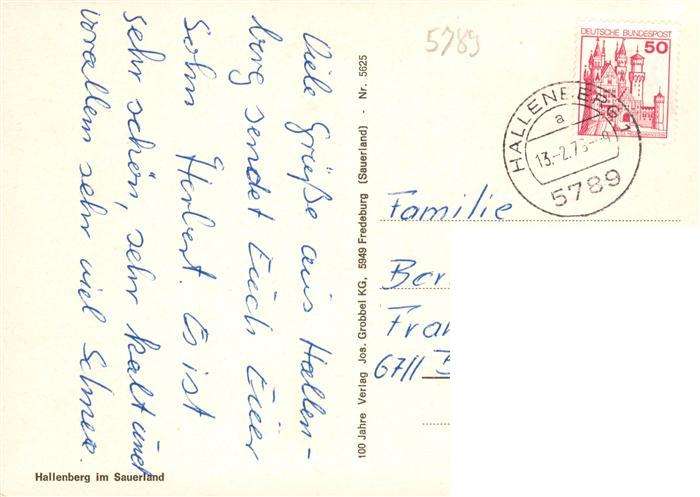 Viele Grüße aus Hallen-
berg sendet Euch Euer
Sohn Herbert. Es ist
sehr schön, sehr kalt und
vorallem sehr viel Schnee.
Hallenberg im Sauerland
100 Jahre Verlag Jos. Grobbel KG, 5949 Fredeburg (Sauerland) - Nr. 5625
5789
DEUTSCHE BUNDESPOST
50
HALLENBERG 1
a
13.-2.78
5789
Familie
Ber
Fra
6711